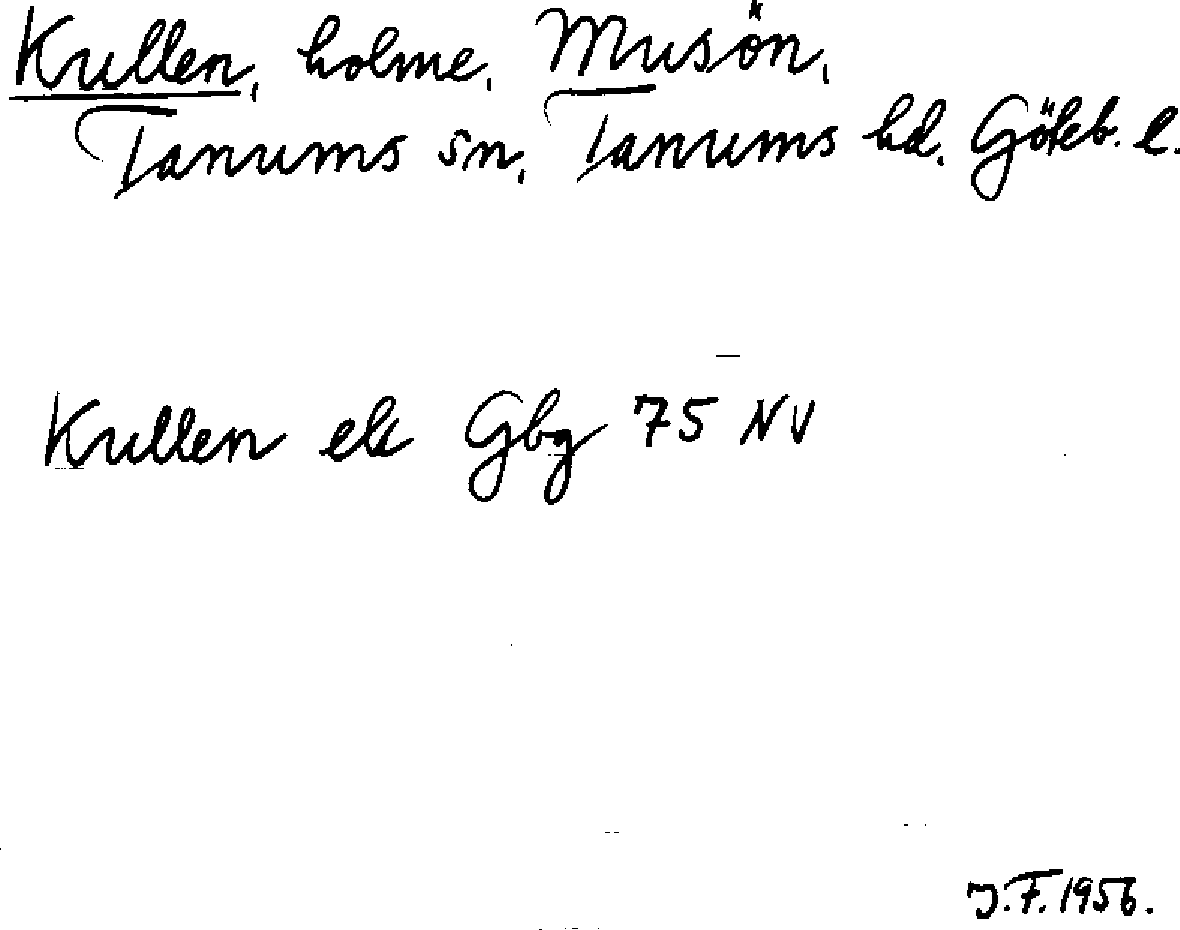 Kullen, holme, Musön,
Tanums sn, Tanums hd. Göteb. l.
Kullen ek Gbg 75 NV
J.F. 1956.